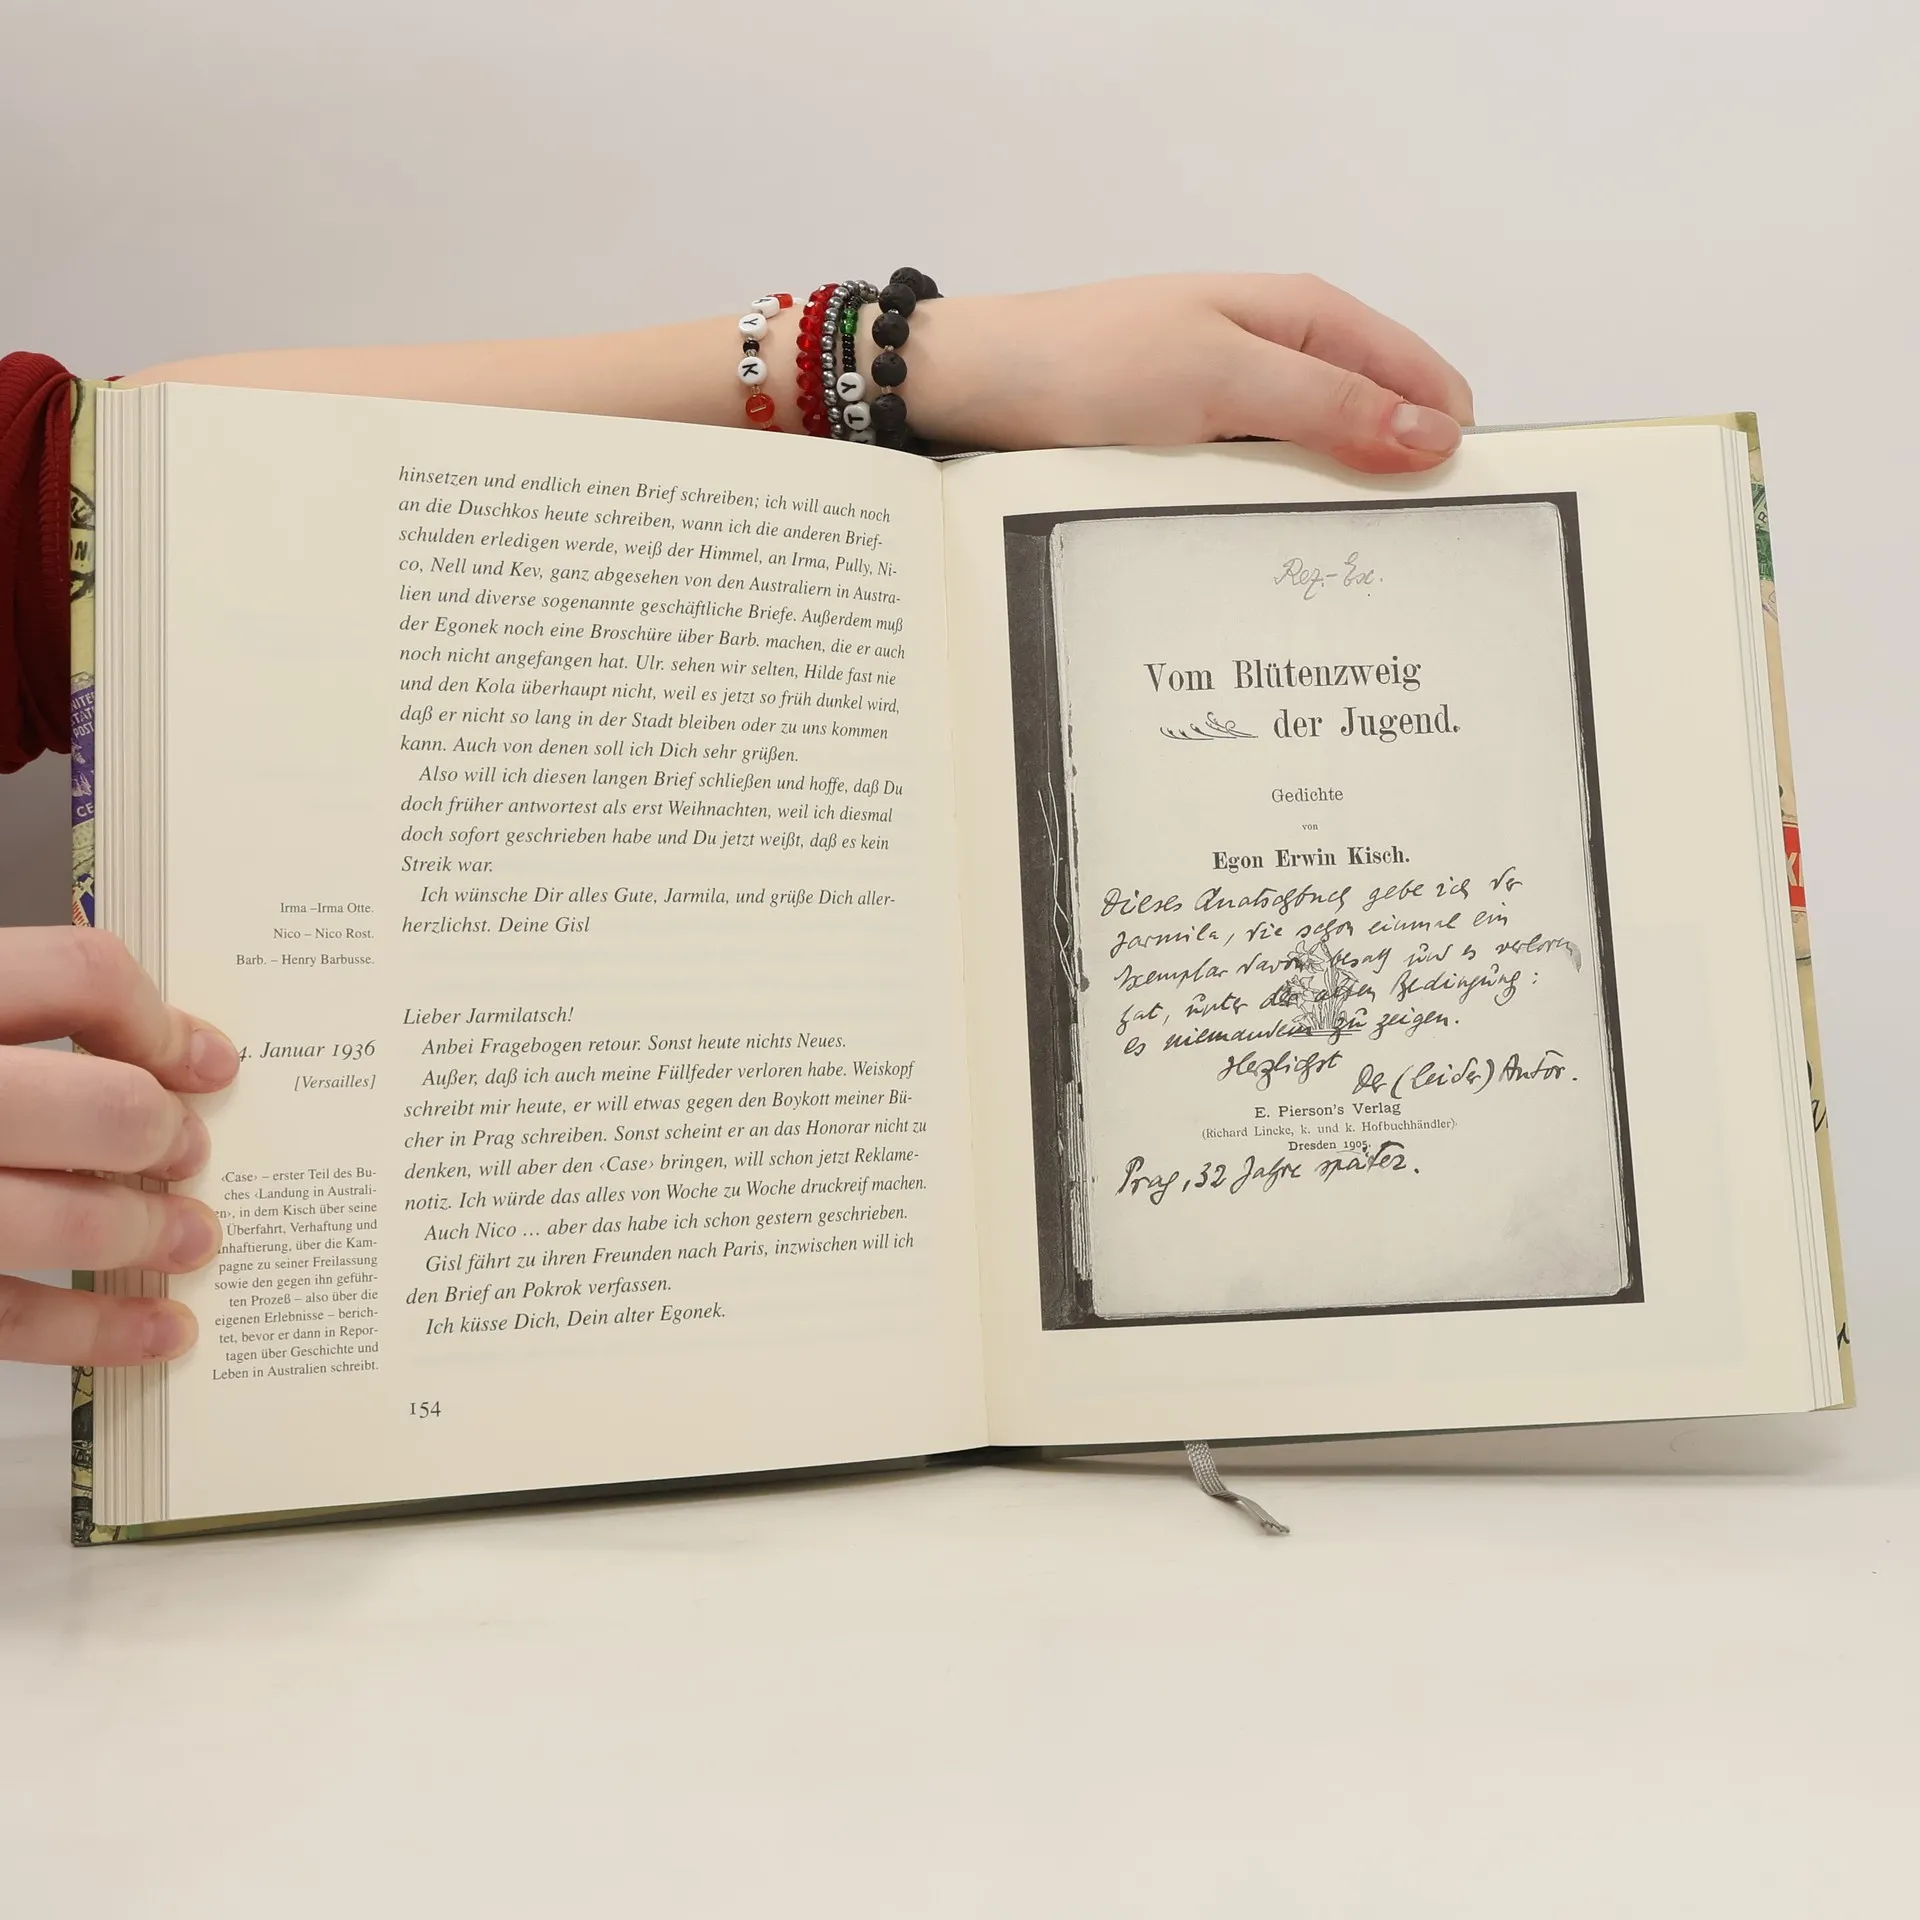 hinsetzen und endlich einen Brief schreiben; ich will auch noch
an die Duschkos heute schreiben, wann ich die anderen Brief-
schulden erledigen werde, weiß der Himmel, an Irma, Pully, Ni-
co, Nell und Kev, ganz abgesehen von den Australiern in Austra-
lien und diverse sogenannte geschäftliche Briefe. Außerdem muß
der Egonek noch eine Broschüre über Barb. machen, die er auch
noch nicht angefangen hat. Ulr. sehen wir selten, Hilde fast nie
und den Kola überhaupt nicht, weil es jetzt so früh dunkel wird,
daß er nicht so lang in der Stadt bleiben oder zu uns kommen
kann. Auch von denen soll ich Dich sehr grüßen.
Also will ich diesen langen Brief schließen und hoffe, daß Du
doch früher antwortest als erst Weihnachten, weil ich diesmal
doch sofort geschrieben habe und Du jetzt weißt, daß es kein
Streik war.
Ich wünsche Dir alles Gute, Jarmila, und grüße Dich aller-
herzlichst. Deine Gisl
Irma –Irma Otte.
Nico – Nico Rost.
Barb. – Henry Barbusse.
Lieber Jarmilatsch!
Anbei Fragebogen retour. Sonst heute nichts Neues.
Außer, daß ich auch meine Füllfeder verloren habe. Weiskopf
schreibt mir heute, er will etwas gegen den Boykott meiner Bü-
cher in Prag schreiben. Sonst scheint er an das Honorar nicht zu
denken, will aber den ‹Case› bringen, will schon jetzt Reklame-
notiz. Ich würde das alles von Woche zu Woche druckreif machen.
Auch Nico ... aber das habe ich schon gestern geschrieben.
Gisl fährt zu ihren Freunden nach Paris, inzwischen will ich
den Brief an Pokrok verfassen.
Ich küsse Dich, Dein alter Egonek.
4. Januar 1936
[Versailles]
‹Case› – erster Teil des Bu-
ches ‹Landung in Australi-
en›, in dem Kisch über seine
Überfahrt, Verhaftung und
nhaftierung, über die Kam-
pagne zu seiner Freilassung
sowie den gegen ihn geführ-
ten Prozeß – also über die
eigenen Erlebnisse – berich-
tet, bevor er dann in Repor-
tagen über Geschichte und
Leben in Australien schreibt.
154
Rez.-Ex.
Vom Blütenzweig
der Jugend.
Gedichte
von
Egon Erwin Kisch.
Dieses Quatschbuch gebe ich der
Jarmila, die schon einmal ein
Exemplar davon besaß und es verloren
hat, unter der alten Bedingung:
es niemandem zu zeigen.
Herzlichst
Der (leider) Autor.
E. Pierson's Verlag
(Richard Lincke, k. und k. Hofbuchhändler)
Dresden 1905.
Prag, 32 Jahre später.
Y
K
Y
T